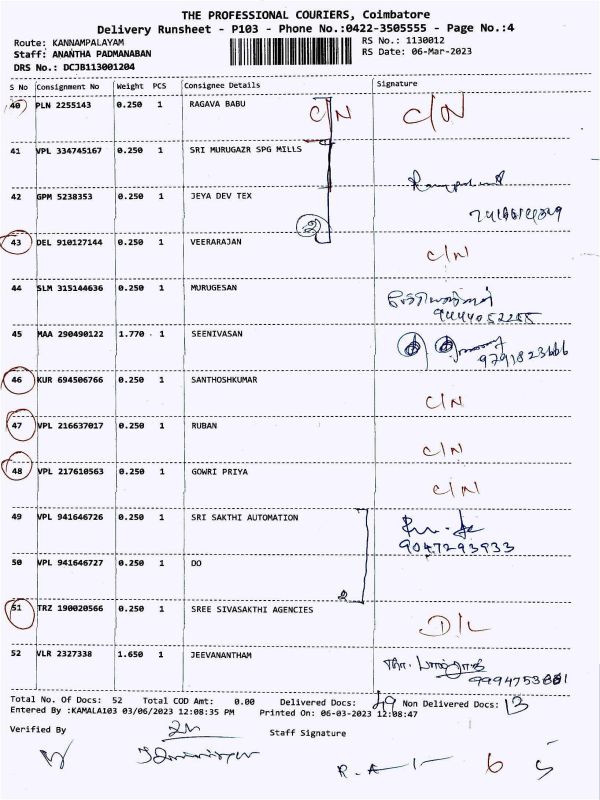 THE PROFESSIONAL COURIERS, Coimbatore
Delivery Runsheet - P103 - Phone No.:0422-3505555 - Page No.:4
Route: KANNAMPALAYAM
RS No.: 1130012
Staff: ANANTHA PADMANABAN
RS Date: 06-Mar-2023
DRS No.: DCJB113001204
S No Consignment No Weight PCS Consignee Details Signature
40 PLN 2255143 0.250 1 RAGAVA BABU C/N C/N
41 VPL 334745167 0.250 1 SRI MURUGAZR SPG MILLS
42 GPM 5238353 0.250 1 JEYA DEV TEX 2
43 DEL 910127144 0.250 1 VEERARAJAN C/N
44 SLM 315144636 0.250 1 MURUGESAN
9444052255
45 MAA 290490122 1.770 1 SEENIVASAN
9791823666
46 KUR 694506766 0.250 1 SANTHOSHKUMAR C/N
47 VPL 216637017 0.250 1 RUBAN C/N
48 VPL 217610563 0.250 1 GOWRI PRIYA C/N
49 VPL 941646726 0.250 1 SRI SAKTHI AUTOMATION
9047293933
50 VPL 941646727 0.250 1 DO 2
51 TRZ 190020566 0.250 1 SREE SIVASAKTHI AGENCIES D/L
52 VLR 2327338 1.650 1 JEEVANANTHAM
Total No. Of Docs: 52 Total COD Amt: 0.00 Delivered Docs: Non Delivered Docs: 13
Entered By :KAMALA103 03/06/2023 12:08:35 PM Printed On: 06-03-2023 12:08:47
Verified By
Staff Signature
6 5